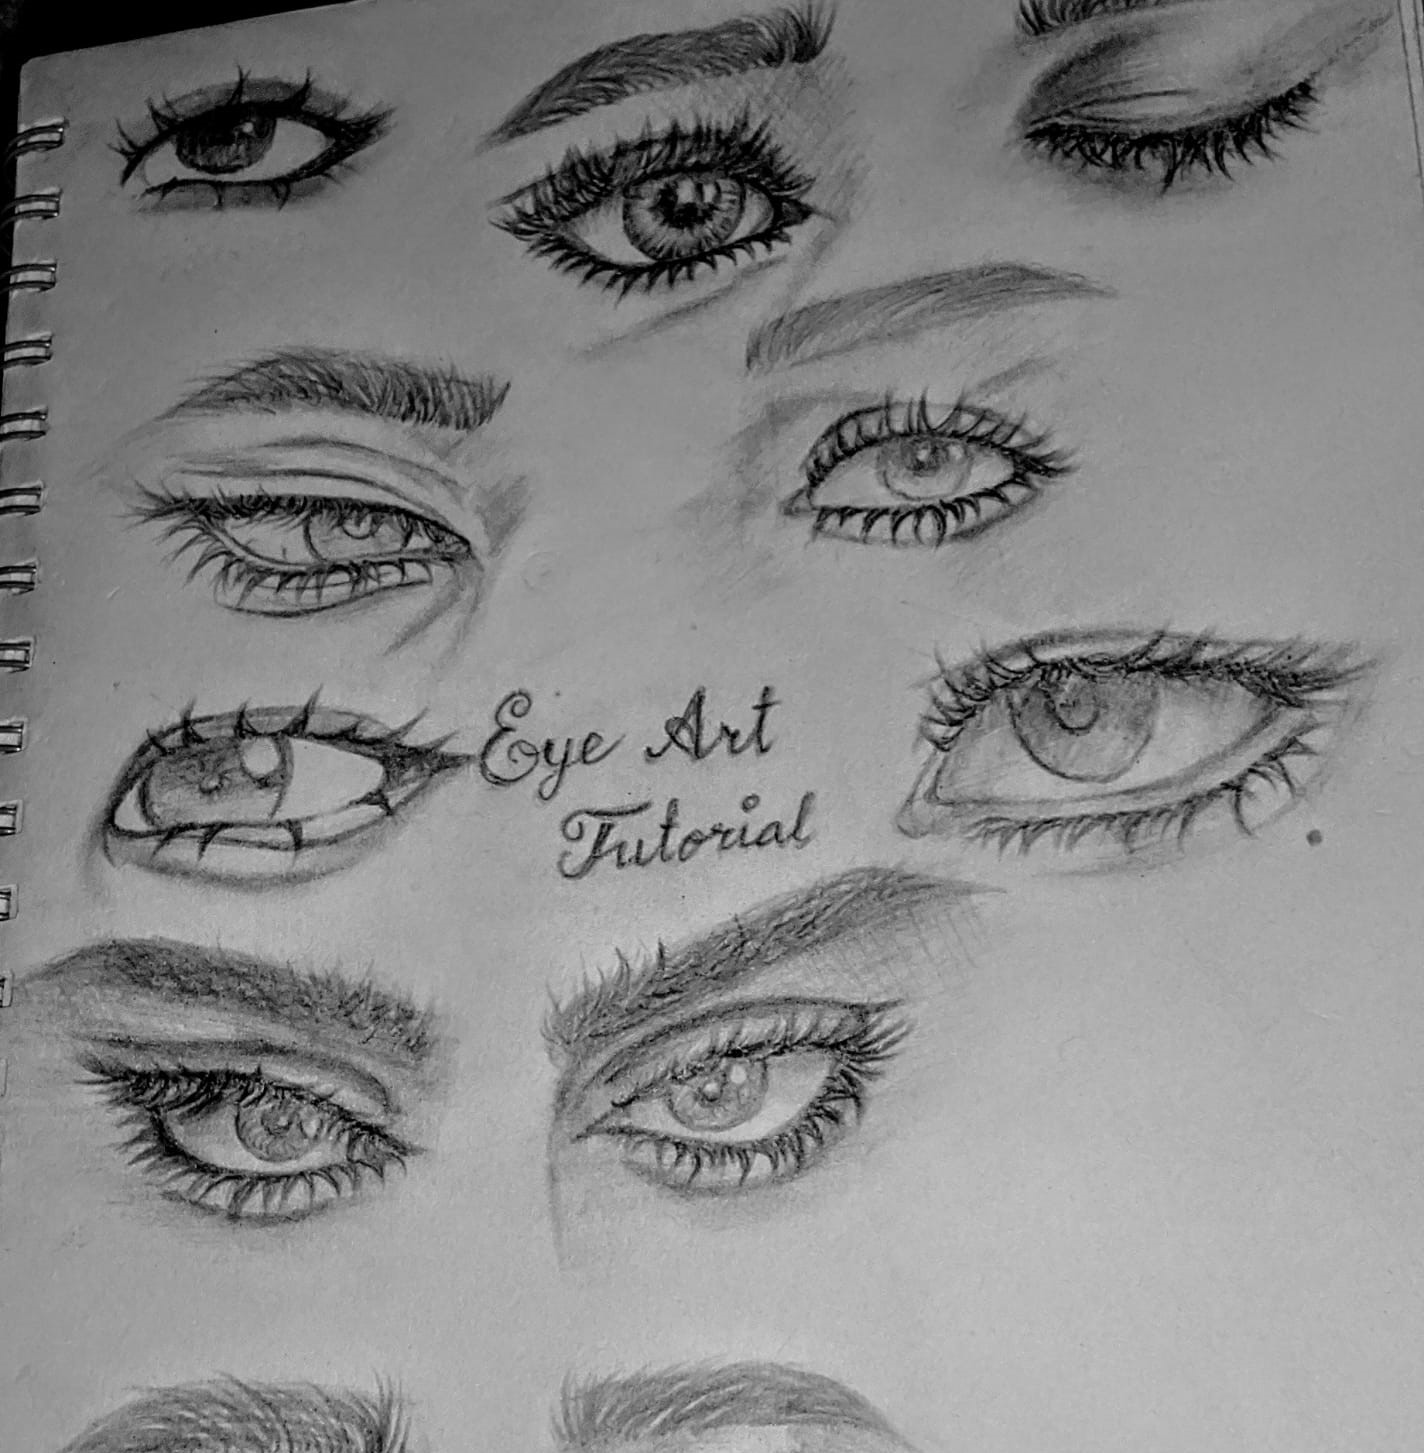 Eye Art
Tutorial